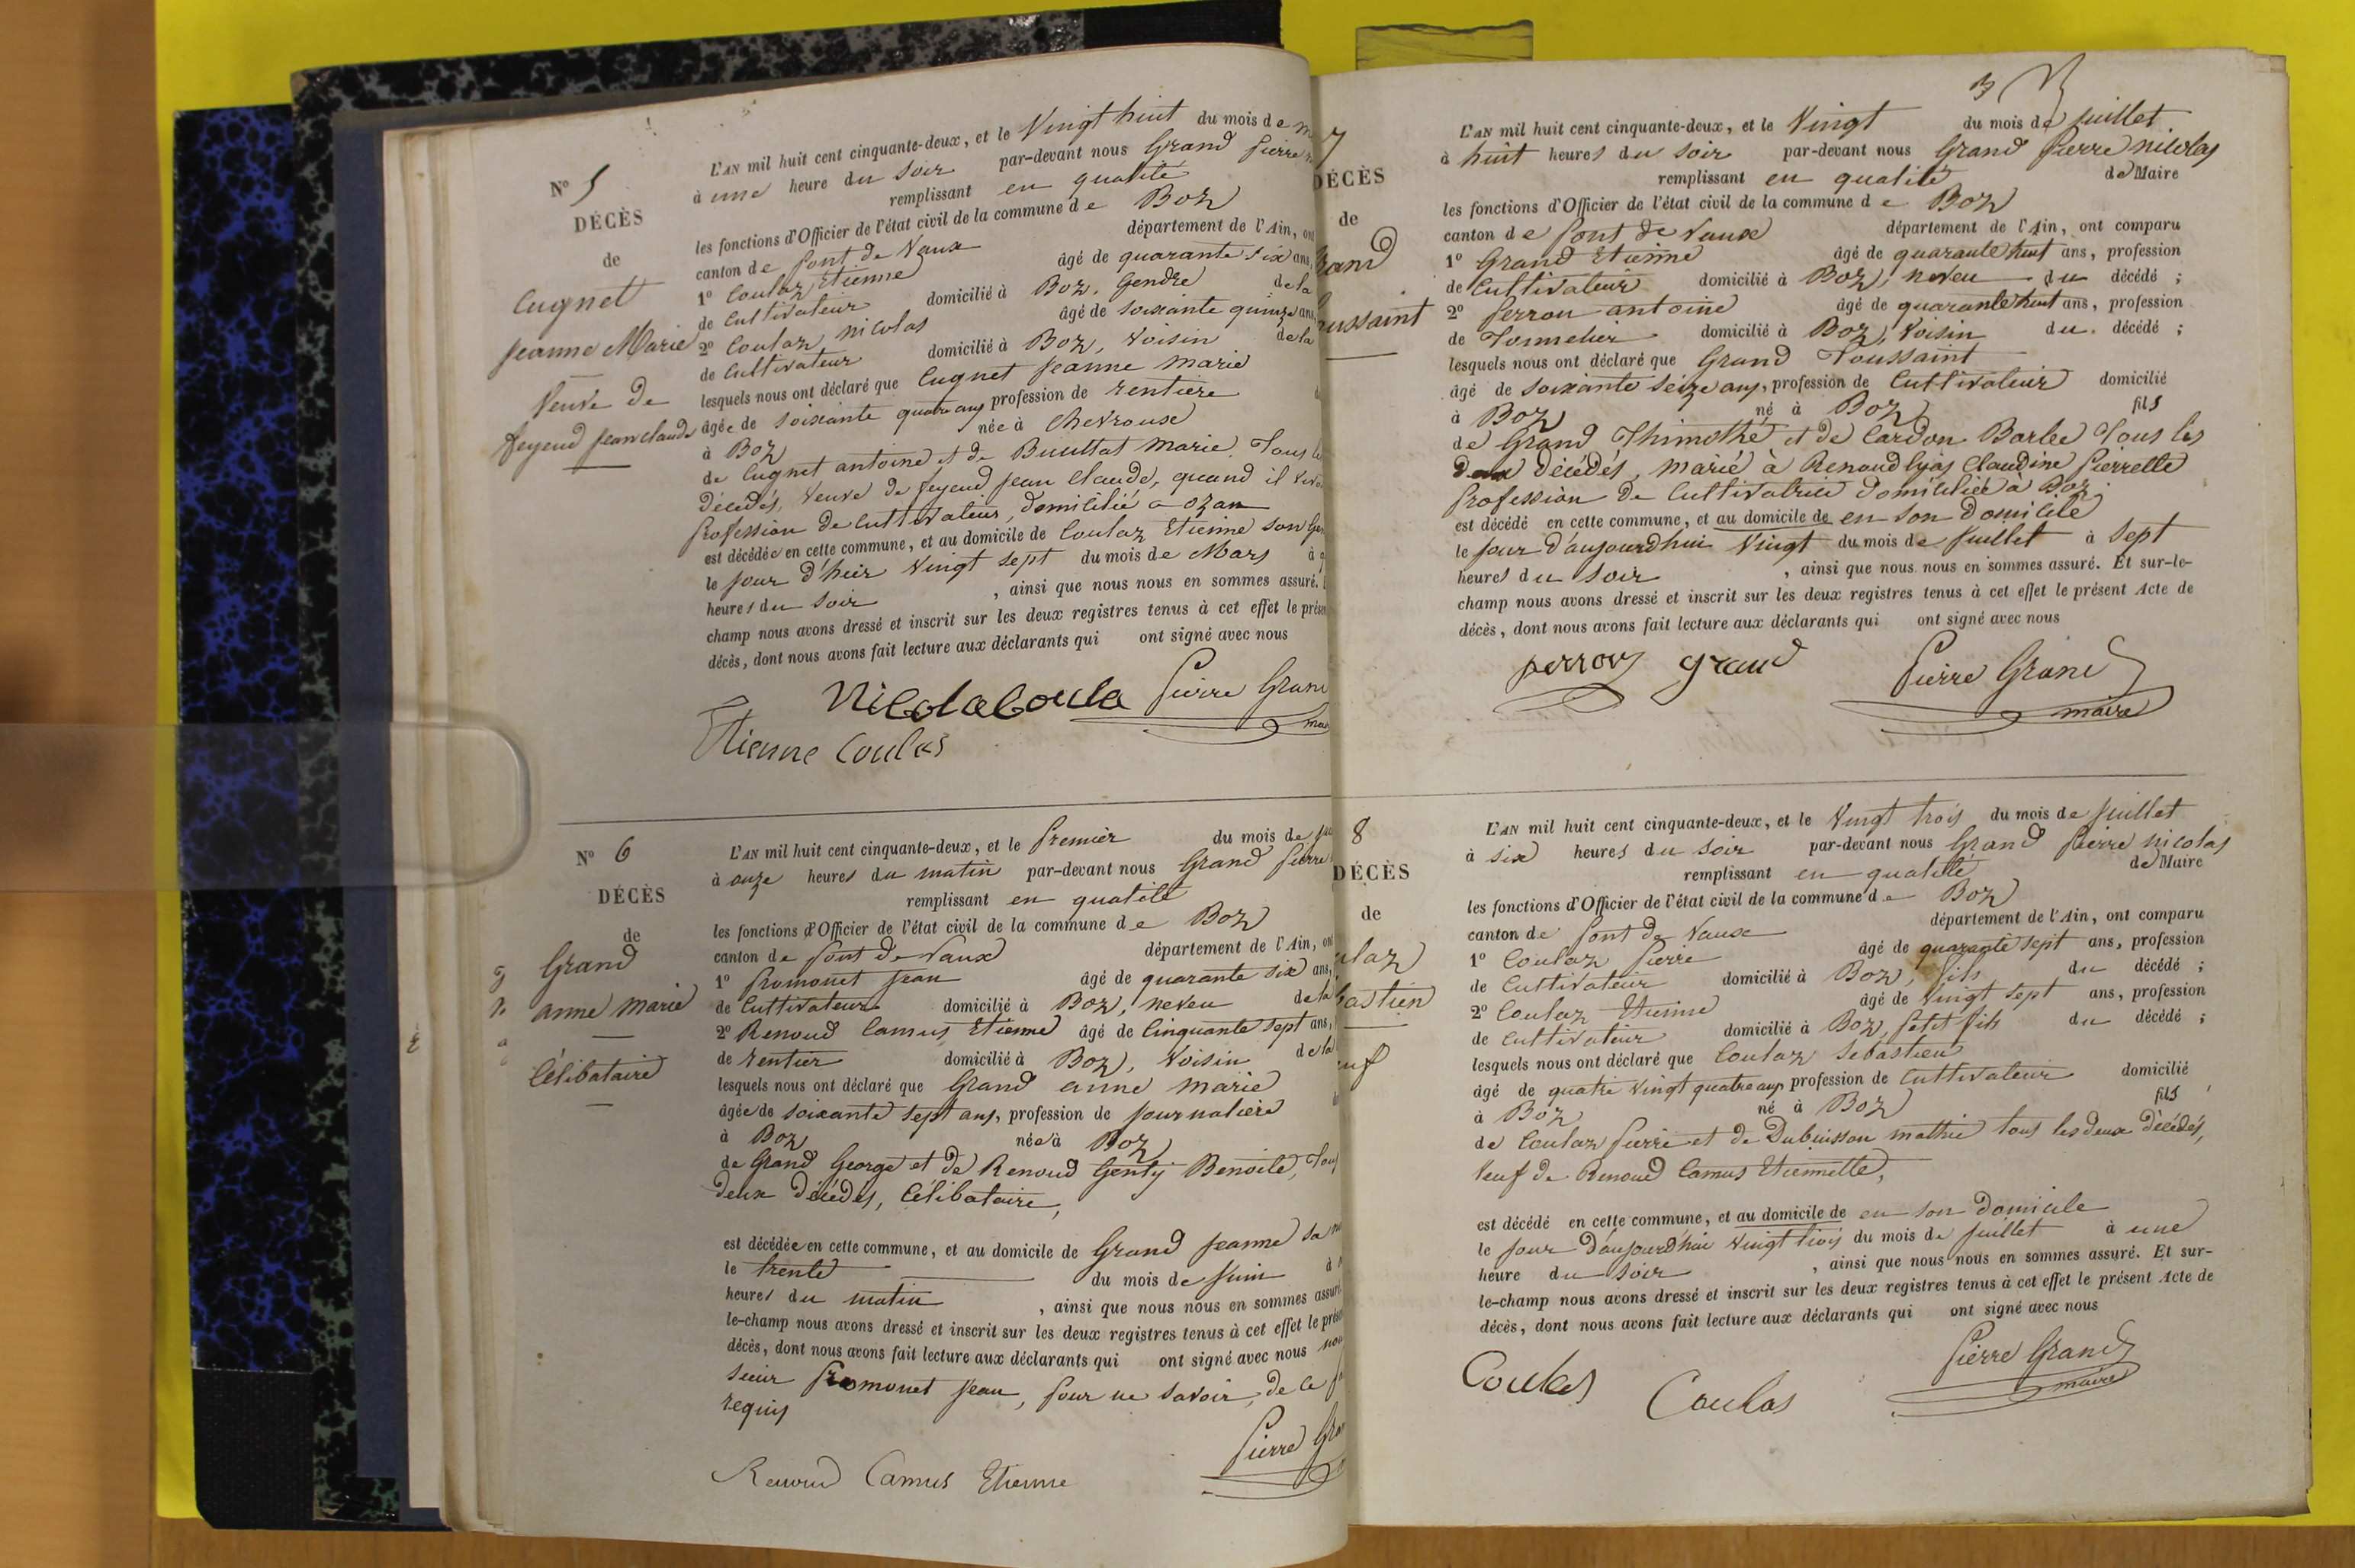 N° 5
DÉCÈS
de
Cugnet
Jeanne Marie
Veuve de
feyeud Jean claude
L'AN mil huit cent cinquante-deux, et le Vingt huit du mois de
à une heure du soir par-devant nous Grand Pierre
remplissant en qualité
les fonctions d'Officier de l'état civil de la commune de Boz
canton de Pont de Vaux département de l'Ain,
1° Coulaz Etienne âgé de quarante six ans,
de Cultivateur domicilié à Boz, Gendre de la
2° Coulaz nicolas âgé de soixante quinze ans,
de Cultivateur domicilié à Boz, Voisin de la
lesquels nous ont déclaré que Cugnet Jeanne Marie
âgée de soixante quatre ans profession de rentiere
à Boz née à Chevrouse
de Cugnet antoine et de Buuttat Marie, Tous
Décédés, Veuve de feyeud Jean Claude, quand il
Profession de Cultivateur, domicilié a ozan
est décédée en cette commune, et au domicile de Coulaz Etienne son
le jour d'hier Vingt sept du mois de Mars à
heures du soir , ainsi que nous nous en sommes assuré.
champ nous avons dressé et inscrit sur les deux registres tenus à cet effet le
décès, dont nous avons fait lecture aux déclarants qui ont signé avec nous
Nicolacoula Pierre Gran
Etienne Coulas
N° 6
DÉCÈS
de
Grand
anne marie
Célibataire
L'AN mil huit cent cinquante-deux, et le Premier du mois de
à onze heures du matin par-devant nous Grand Pierre
remplissant en qualité
les fonctions d'Officier de l'état civil de la commune de Boz
canton de Pont de Vaux département de l'Ain,
1° Promonet Jean âgé de quarante six ans,
de Cultivateur domicilié à Boz, neveu de la
2° Renoud Camus Etienne âgé de Cinquante sept ans,
de rentier domicilié à Boz, Voisin de la
lesquels nous ont déclaré que Grand anne Marie
âgée de soixante sept ans, profession de journaliere
à Boz née à Boz
de Grand George et de Renoud Genty Benoite,
deux décédés, Célibataire,
est décédée en cette commune, et au domicile de Grand Jeanne sa
le trente du mois de Juin à
heures du matin , ainsi que nous nous en sommes
le-champ nous avons dressé et inscrit sur les deux registres tenus à cet effet le
décès, dont nous avons fait lecture aux déclarants qui ont signé avec nous
sieur Promonet Jean, pour ne savoir, de ce
requis
Renoud Camus Etienne Pierre
7
DÉCÈS
de
L'AN mil huit cent cinquante-deux, et le Vingt du mois de juillet
à huit heures du soir par-devant nous Grand Pierre nicolas
remplissant en qualité de Maire
les fonctions d'Officier de l'état civil de la commune de Boz
canton de Pont de Vaux département de l'Ain, ont comparu
1° Grand Etienne âgé de quarante huit ans, profession
de Cultivateur domicilié à Boz, neveu du décédé ;
2° Perron antoine âgé de quarante huit ans, profession
de Tonnelier domicilié à Boz, Voisin du décédé ;
lesquels nous ont déclaré que Grand Toussaint
âgé de soixante seize ans, profession de Cultivateur domicilié
à Boz né à Boz fils
de Grand Thimothé et de Cardon Barbe Tous les
deux décédés, marié à Renoud lyas Claudine Pierrette
Profession de Cultivatrice domiciliée à Boz
est décédé en cette commune, et au domicile de en son domicile
le jour d'aujourdhui Vingt du mois de Juillet à sept
heures du soir , ainsi que nous nous en sommes assuré. Et sur-le-
champ nous avons dressé et inscrit sur les deux registres tenus à cet effet le présent Acte de
décès, dont nous avons fait lecture aux déclarants qui ont signé avec nous
perron grand Pierre Grand
maire
8
DÉCÈS
de
L'AN mil huit cent cinquante-deux, et le Vingt trois du mois de juillet
à six heures du soir par-devant nous Grand Pierre nicolas
remplissant en qualité de Maire
les fonctions d'Officier de l'état civil de la commune de Boz
canton de Pont de Vaux département de l'Ain, ont comparu
1° Coulaz Pierre âgé de quarante sept ans, profession
de Cultivateur domicilié à Boz, fils du décédé ;
2° Coulaz Etienne âgé de Vingt sept ans, profession
de Cultivateur domicilié à Boz, petit fils du décédé ;
lesquels nous ont déclaré que Coulaz Sebastien
âgé de quatre Vingt quatre ans profession de Cultivateur domicilié
à Boz né à Boz fils
de Coulaz Pierre et de Dubuisson mathie tous les deux décédés,
Veuf de Renoud Camus Etiennette,
est décédé en cette commune, et au domicile de en son domicile
le jour D'aujourdhui Vingt trois du mois de juillet à une
heure du soir , ainsi que nous nous en sommes assuré. Et sur-
le-champ nous avons dressé et inscrit sur les deux registres tenus à cet effet le présent Acte de
décès, dont nous avons fait lecture aux déclarants qui ont signé avec nous
Coulas Coulas Pierre Grand
maire